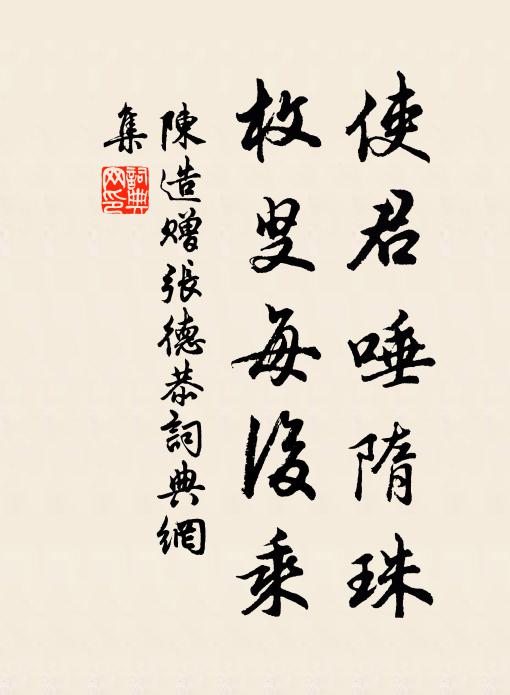 使君唾隋珠
枚叟每後乘
陳造贈張德恭詞典網
集
詞典網印